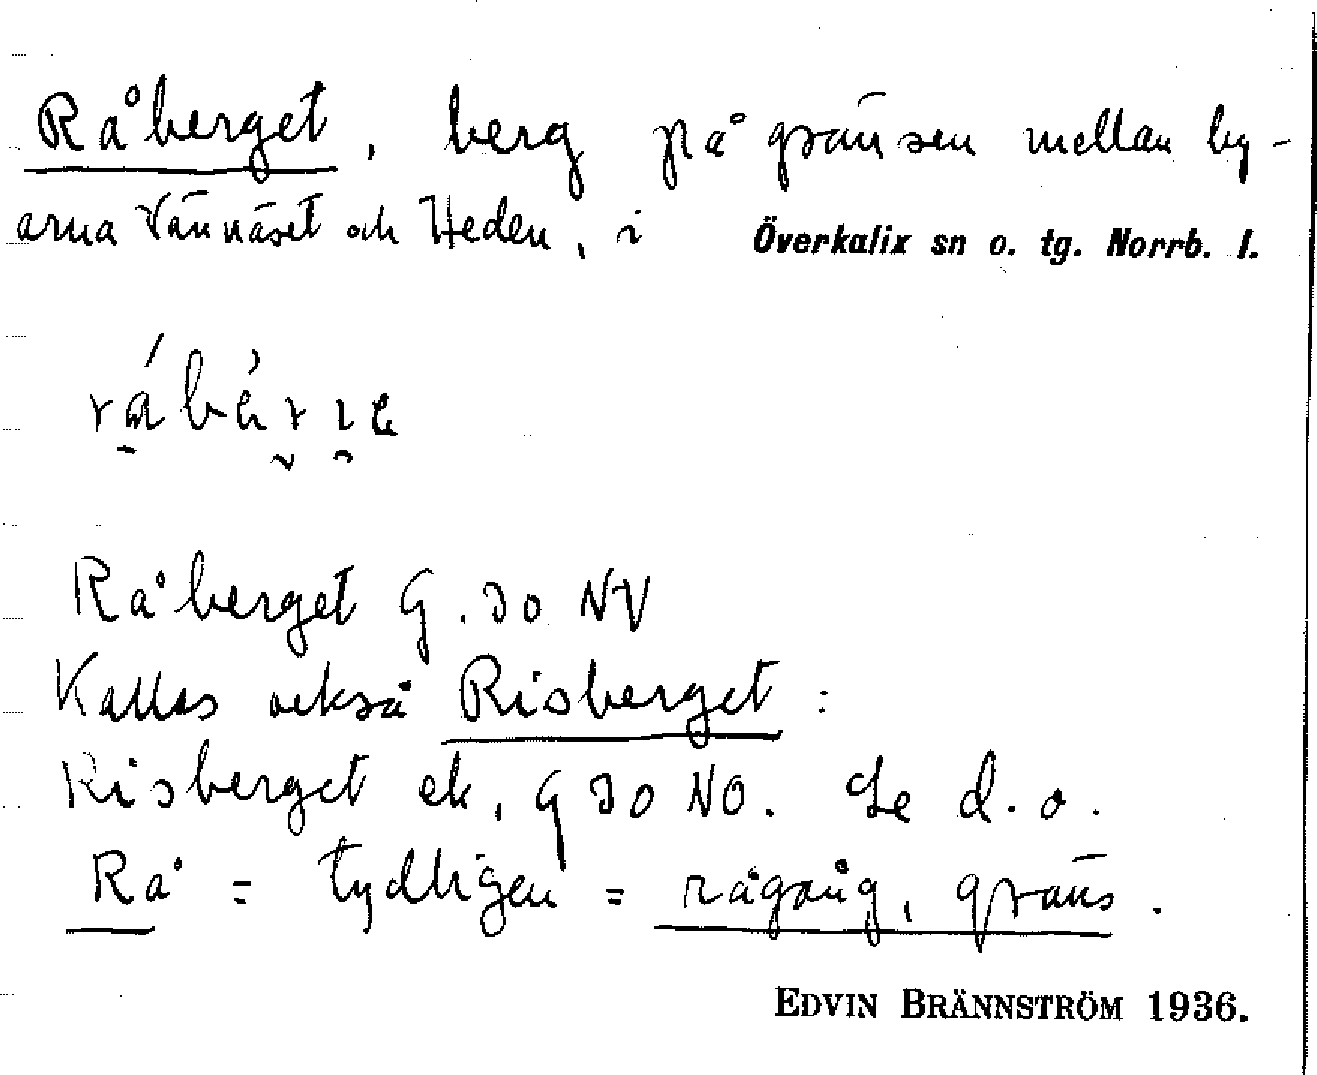 Råberget, berg på gränsen mellan by-
arna Vännäset och Heden, i Överkalix sn o. tg. Norrb. l.
Råberget G. 30 NV
Kallas också Risberget:
Risberget ek, G 30 NO. Se d. o.
Rå = tydligen = rågång, gräns.
EDVIN BRÄNNSTRÖM 1936.